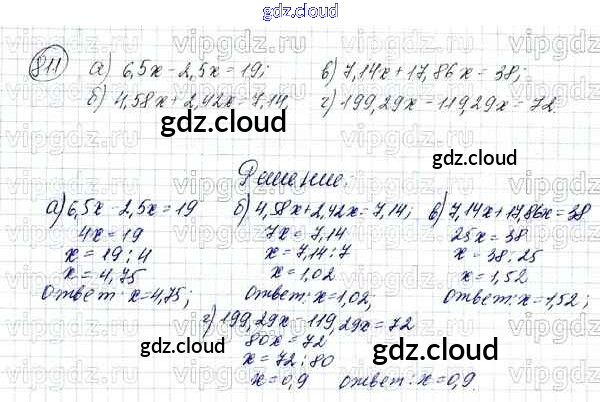 gdz.cloud
811 а) 6,5x - 2,5x = 19; в) 7,14x + 17,86x = 38;
б) 4,58x + 2,42x = 7,14, г) 199,29x - 119,29x = 72.
gdz.cloud
gdz.cloud
Решение.
а) 6,5x - 2,5x = 19
4x = 19
x = 19 : 4
x = 4,75
Ответ: x = 4,75;
б) 4,58x + 2,42x = 7,14;
7x = 7,14
x = 7,14 : 7
x = 1,02
Ответ: x = 1,02,
в) 7,14x + 17,86x = 38
25x = 38
x = 38 : 25
x = 1,52
Ответ: x = 1,52;
г) 199,29x - 119,29x = 72
80x = 72
x = 72 : 80
x = 0,9 Ответ: x = 0,9.
gdz.cloud
gdz.cloud